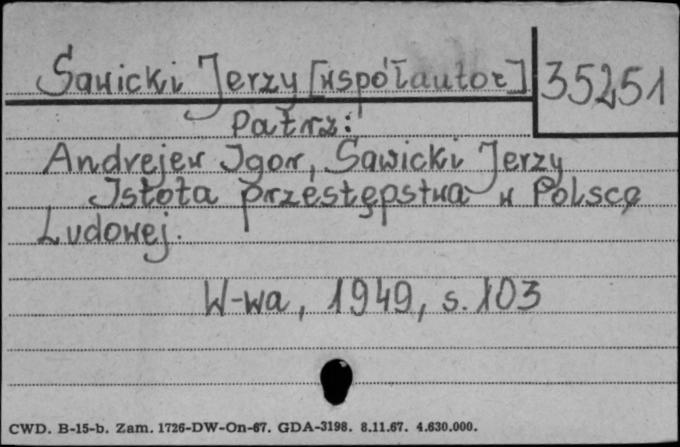 Sawicki Jerzy [współautor] 35251
Patrz:
Andrejew Igor, Sawicki Jerzy
Istota przestępstwa w Polsce
Ludowej.
W-wa, 1949, s. 103
CWD. B-15-b. Zam. 1726-DW-On-67. GDA-3198. 8.11.67. 4.630.000.